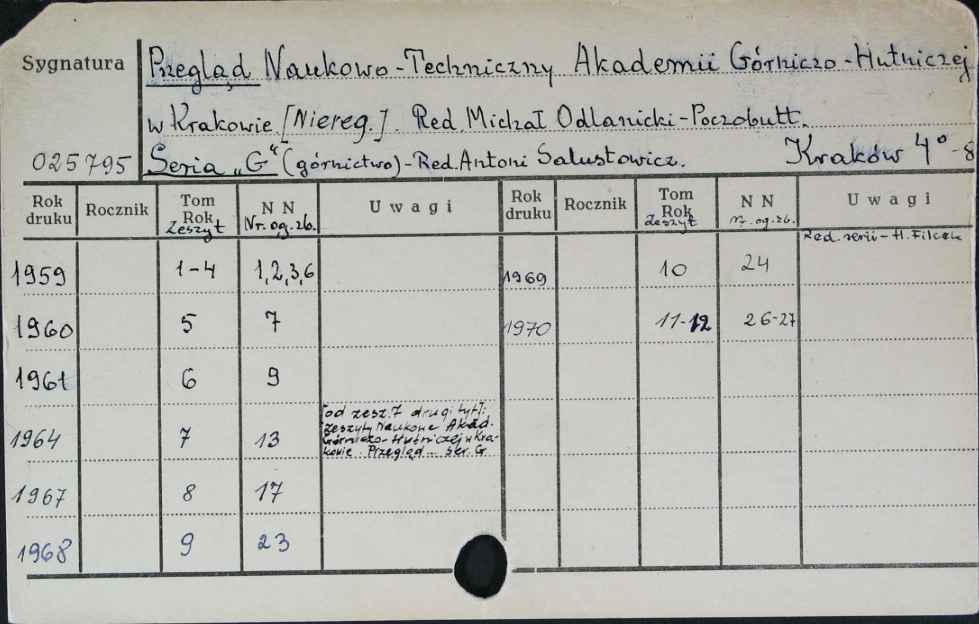 Sygnatura Przegląd Naukowo-Techniczny Akademii Górniczo-Hutniczej
w Krakowie. [Niereg.]. Red. Michał Odlanicki-Poczobutt.
025795 Seria „G“ (górnictwo)-Red. Antoni Sałustowicz. Kraków 4° - 8
Rok druku Rocznik Tom Rok Zeszyt NN Nr. og. zb. Uwagi Rok druku Rocznik Tom Rok Zeszyt NN Nr. og. zb. Uwagi
Red. serii - H. Filcek
1959 1-4 1,2,3,6 1969 10 24
1960 5 7 1970 11-12 26-27
1961 6 9
1964 7 13 [od zesz. 7 drugi tyt]:
Zeszyty Naukowe Akad.
Górniczo-Hutniczej w Kra-
kowie. Przegląd... Ser. G.
1967 8 17
1968 9 23